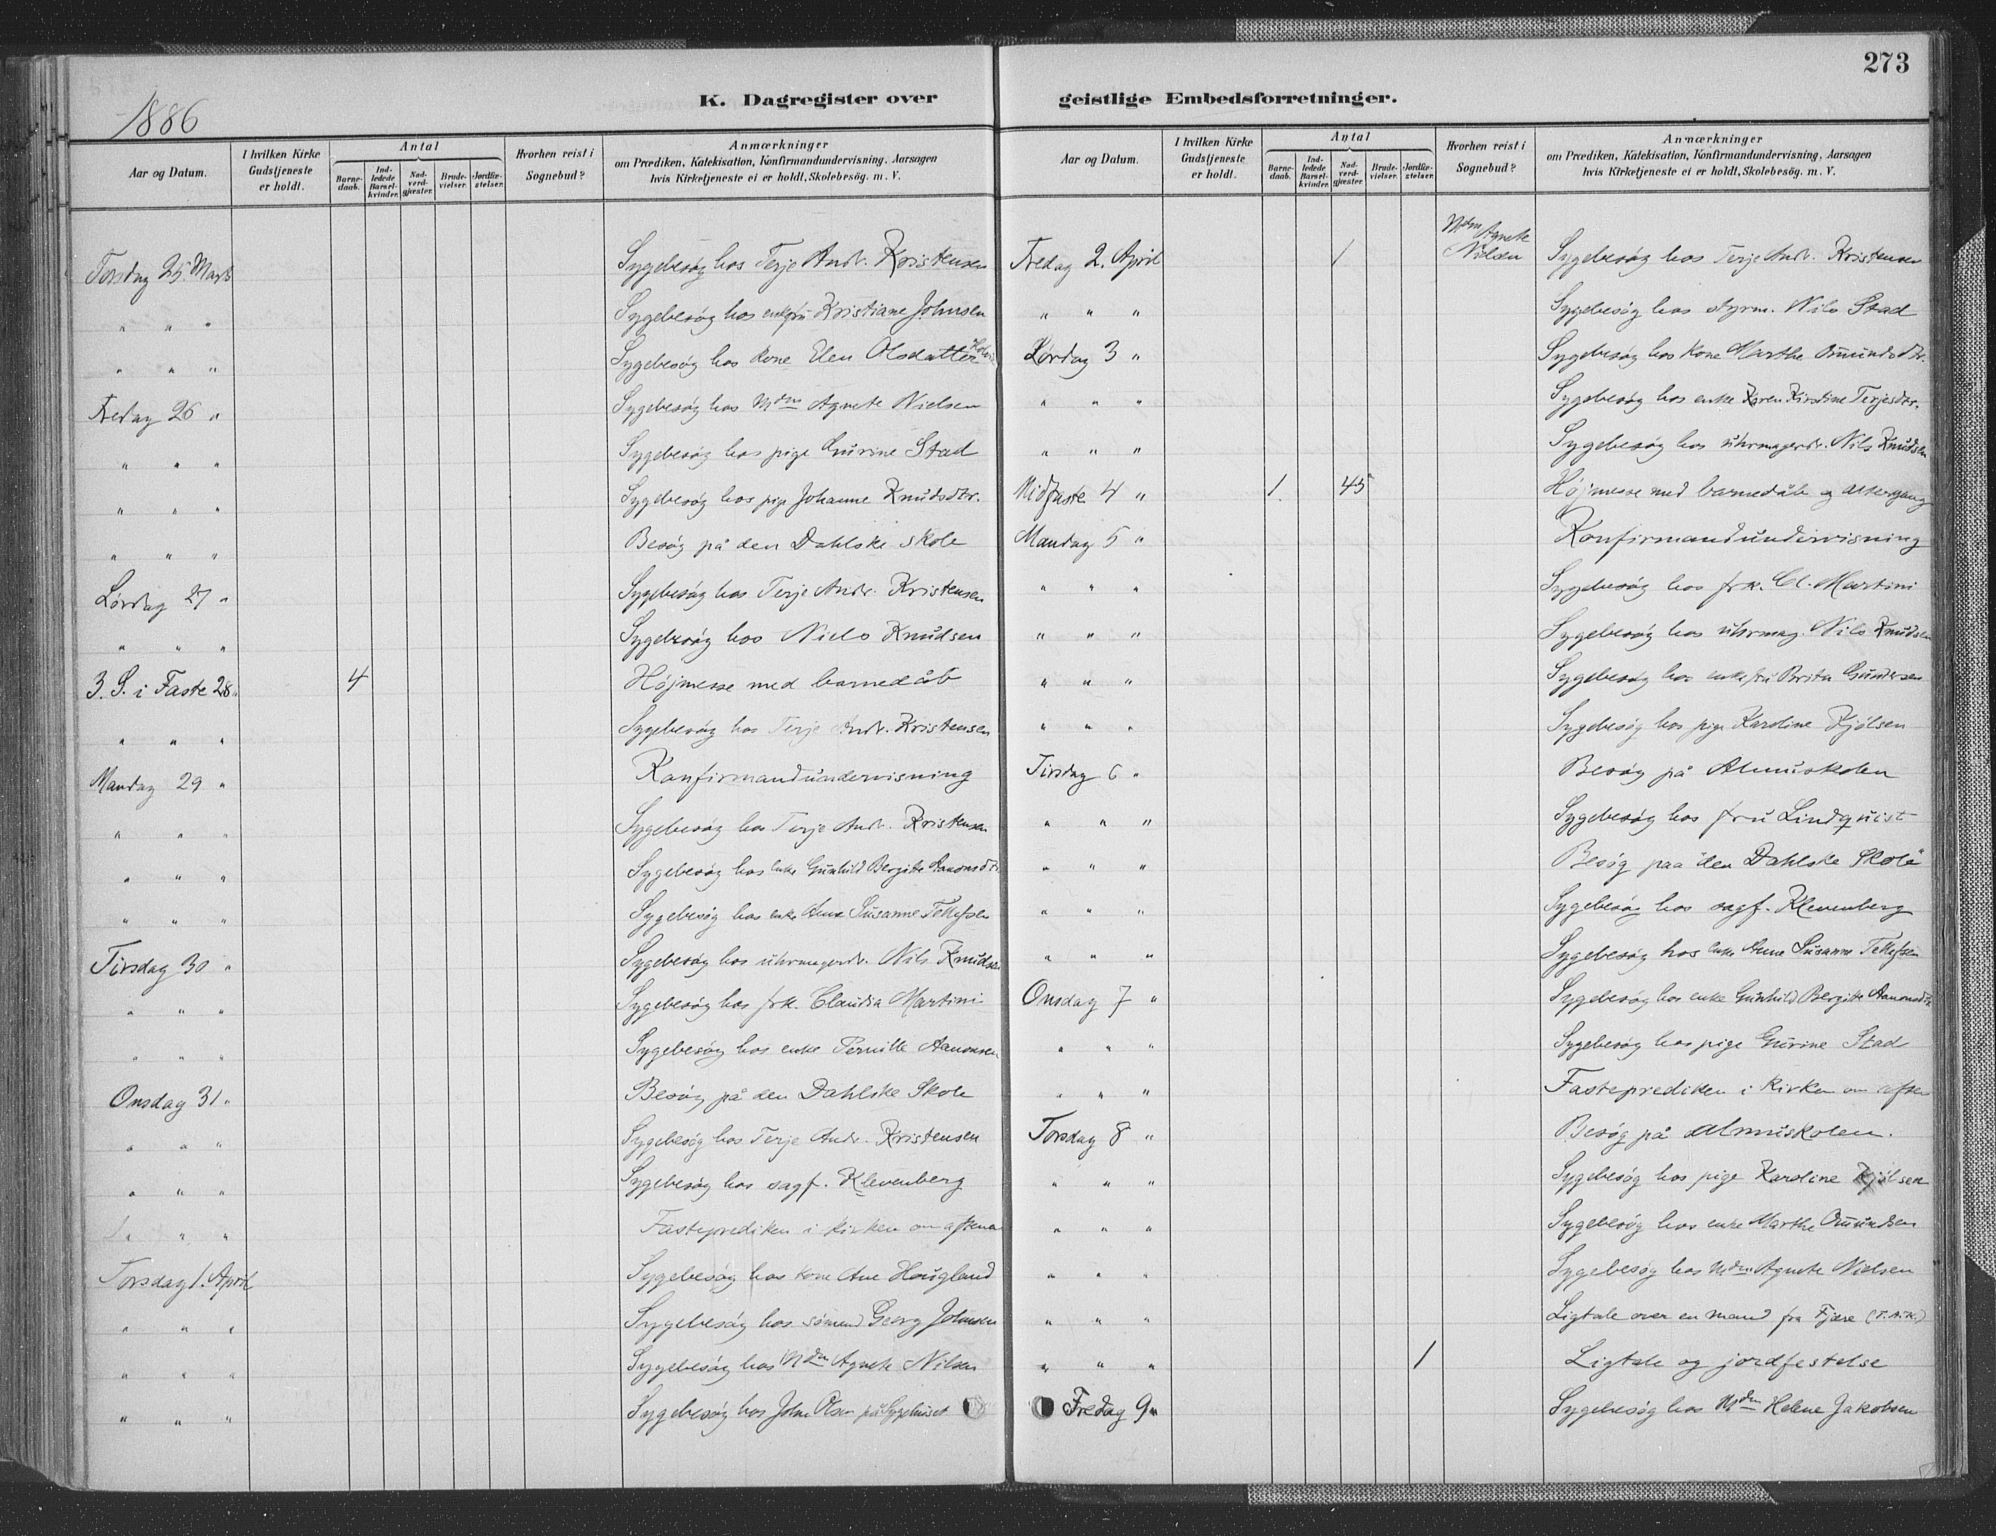 273
K. Dagregister over geistlige Embedsforretninger.
1886
Aar og Datum.
I hvilken Kirke Gudstjeneste er holdt.
Antal
Barnedaab.
Indledede Barselkvinder.
Nadverdgjæster.
Brudevielser.
Jordfæstelser.
Hvorhen reist i Sognebud?
Anmærkninger
om Prædiken, Katekisation, Konfirmandundervisning, Aarsagen
hvis Kirketjeneste ei er holdt, Skolebesøg. m. V.
Torsdag 25. Marts Sygebesøg hos Terje Andr. Kristensen
" " " Sygebesøg hos enkefru Kristiane Johnsen
" " " Sygebesøg hos kone Elen Olsdatter
Fredag 26 " Sygebesøg hos Mdm Agnete Nielsen
" " " Sygebesøg hos pige Gurine Stad
" " " Sygebesøg hos pige Johanne Knudsdtr.
" " " Besøg på den Dahlske skole
Lørdag 27 " Sygebesøg hos Terje Andr. Kristensen
" " " Sygebesøg hos Niels Knudsen
3. S. i Faste 28 " 4 Højmesse med barnedåb
" " " Sygebesøg hos Terje Andr. Kristensen
Mandag 29 " Konfirmandundervisning
" " " Sygebesøg hos Terje Andr. Kristensen
" " " Sygebesøg hos enke Gunhild Bergitte Aanonsdtr
" " " Sygebesøg hos enke Anne Susanne Tellefsen
Tirsdag 30 " Sygebesøg hos uhrmagerdr. Nils Knudsen
" " " Sygebesøg hos frk. Claudia Martini
" " " Sygebesøg hos enke Pernille Aanonsen
Onsdag 31 " Besøg på den Dahlske Skole
" " " Sygebesøg hos Terje Andr. Kristensen
" " " Sygebesøg hos sagf. Klevenberg
" " " Fasteprediken i kirken om aftenen
Torsdag 1. April Sygebesøg hos kone Ane Hougland
" " " Sygebesøg hos sømand Georg Johnsen
" " " Sygebesøg hos Mdm Agnete Nilsen
" " " Sygebesøg hos John Olsen på Sygehuset
Aar og Datum.
I hvilken Kirke Gudstjeneste er holdt.
Antal
Barnedaab.
Indledede Barselkvinder.
Nadverdgjæster.
Brudevielser.
Jordfæstelser.
Hvorhen reist i Sognebud?
Anmærkninger
om Prædiken, Katekisation, Konfirmandundervisning, Aarsagen
hvis Kirketjeneste ei er holdt, Skolebesøg. m. V.
Fredag 2. April 1 Mdm Agnete Nielsen Sygebesøg hos Terje Andr. Kristensen
" " " Sygebesøg hos styrm. Nils Stad
Lørdag 3 " Sygebesøg hos kone Marthe Omundsdtr.
" " " Sygebesøg hos enke Karen Kirstine Terjesdtr.
" " " Sygebesøg hos uhrmagerdr. Nils Knudsen
Midfaste 4 " 1. 45 Højmesse med barnedåb og altergang
Mandag 5 " Konfirmandundervisning
" " " Sygebesøg hos frk. Cl. Martini
" " " Sygebesøg hos uhrmag. Nils Knudsen
" " " Sygebesøg hos enkefru Berita Gundersen
" " " Sygebesøg hos pige Karoline Kjølsen
Tirsdag 6 " Besøg på Almuskolen
" " " Sygebesøg hos fru Lindquist
" " " Besøg paa "den Dahlske Skole"
" " " Sygebesøg hos sagf. Klevenberg
" " " Sygebesøg hos enke Anne Susanne Tellefsen
Onsdag 7 " Sygebesøg hos enke Gunhild Bergitte Aanonsdtr
" " " Sygebesøg hos pige Gurine Stad
" " " Fasteprediken i kirken om aften
Torsdag 8 " Besøg på almuskolen.
" " " Sygebesøg hos pige Karoline Kjølsen
" " " Sygebesøg hos enke Marthe Omundsen
" " " Sygebesøg hos Mdm Agnete Nielsen
" " " Ligtale over en mand fra Fjære (T.A.K.)
" " " 1 Ligtale og jordfestelse
Fredag 9 " Sygebesøg hos Mdm Helene Jakobsen